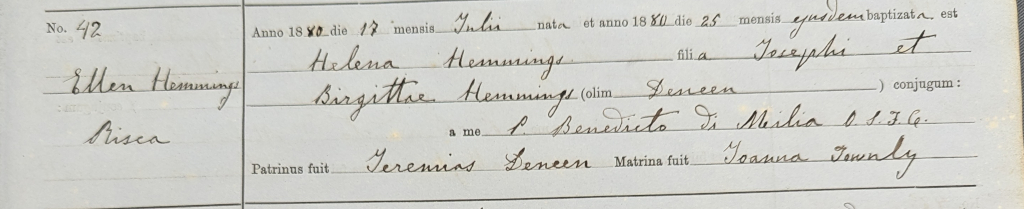 No. 42
Ellen Hemmings
Risca
Anno 1880 die 17 mensis Julii nata et anno 1880 die 25 mensis ejusdem baptizata est
Helena Hemmings filia Josephi et
Birgittae Hemmings (olim Deneen ) conjugum:
a me P. Benedicto Di Meilia O.S.F.C.
Patrinus fuit Jeremias Deneen Matrina fuit Joanna Townly